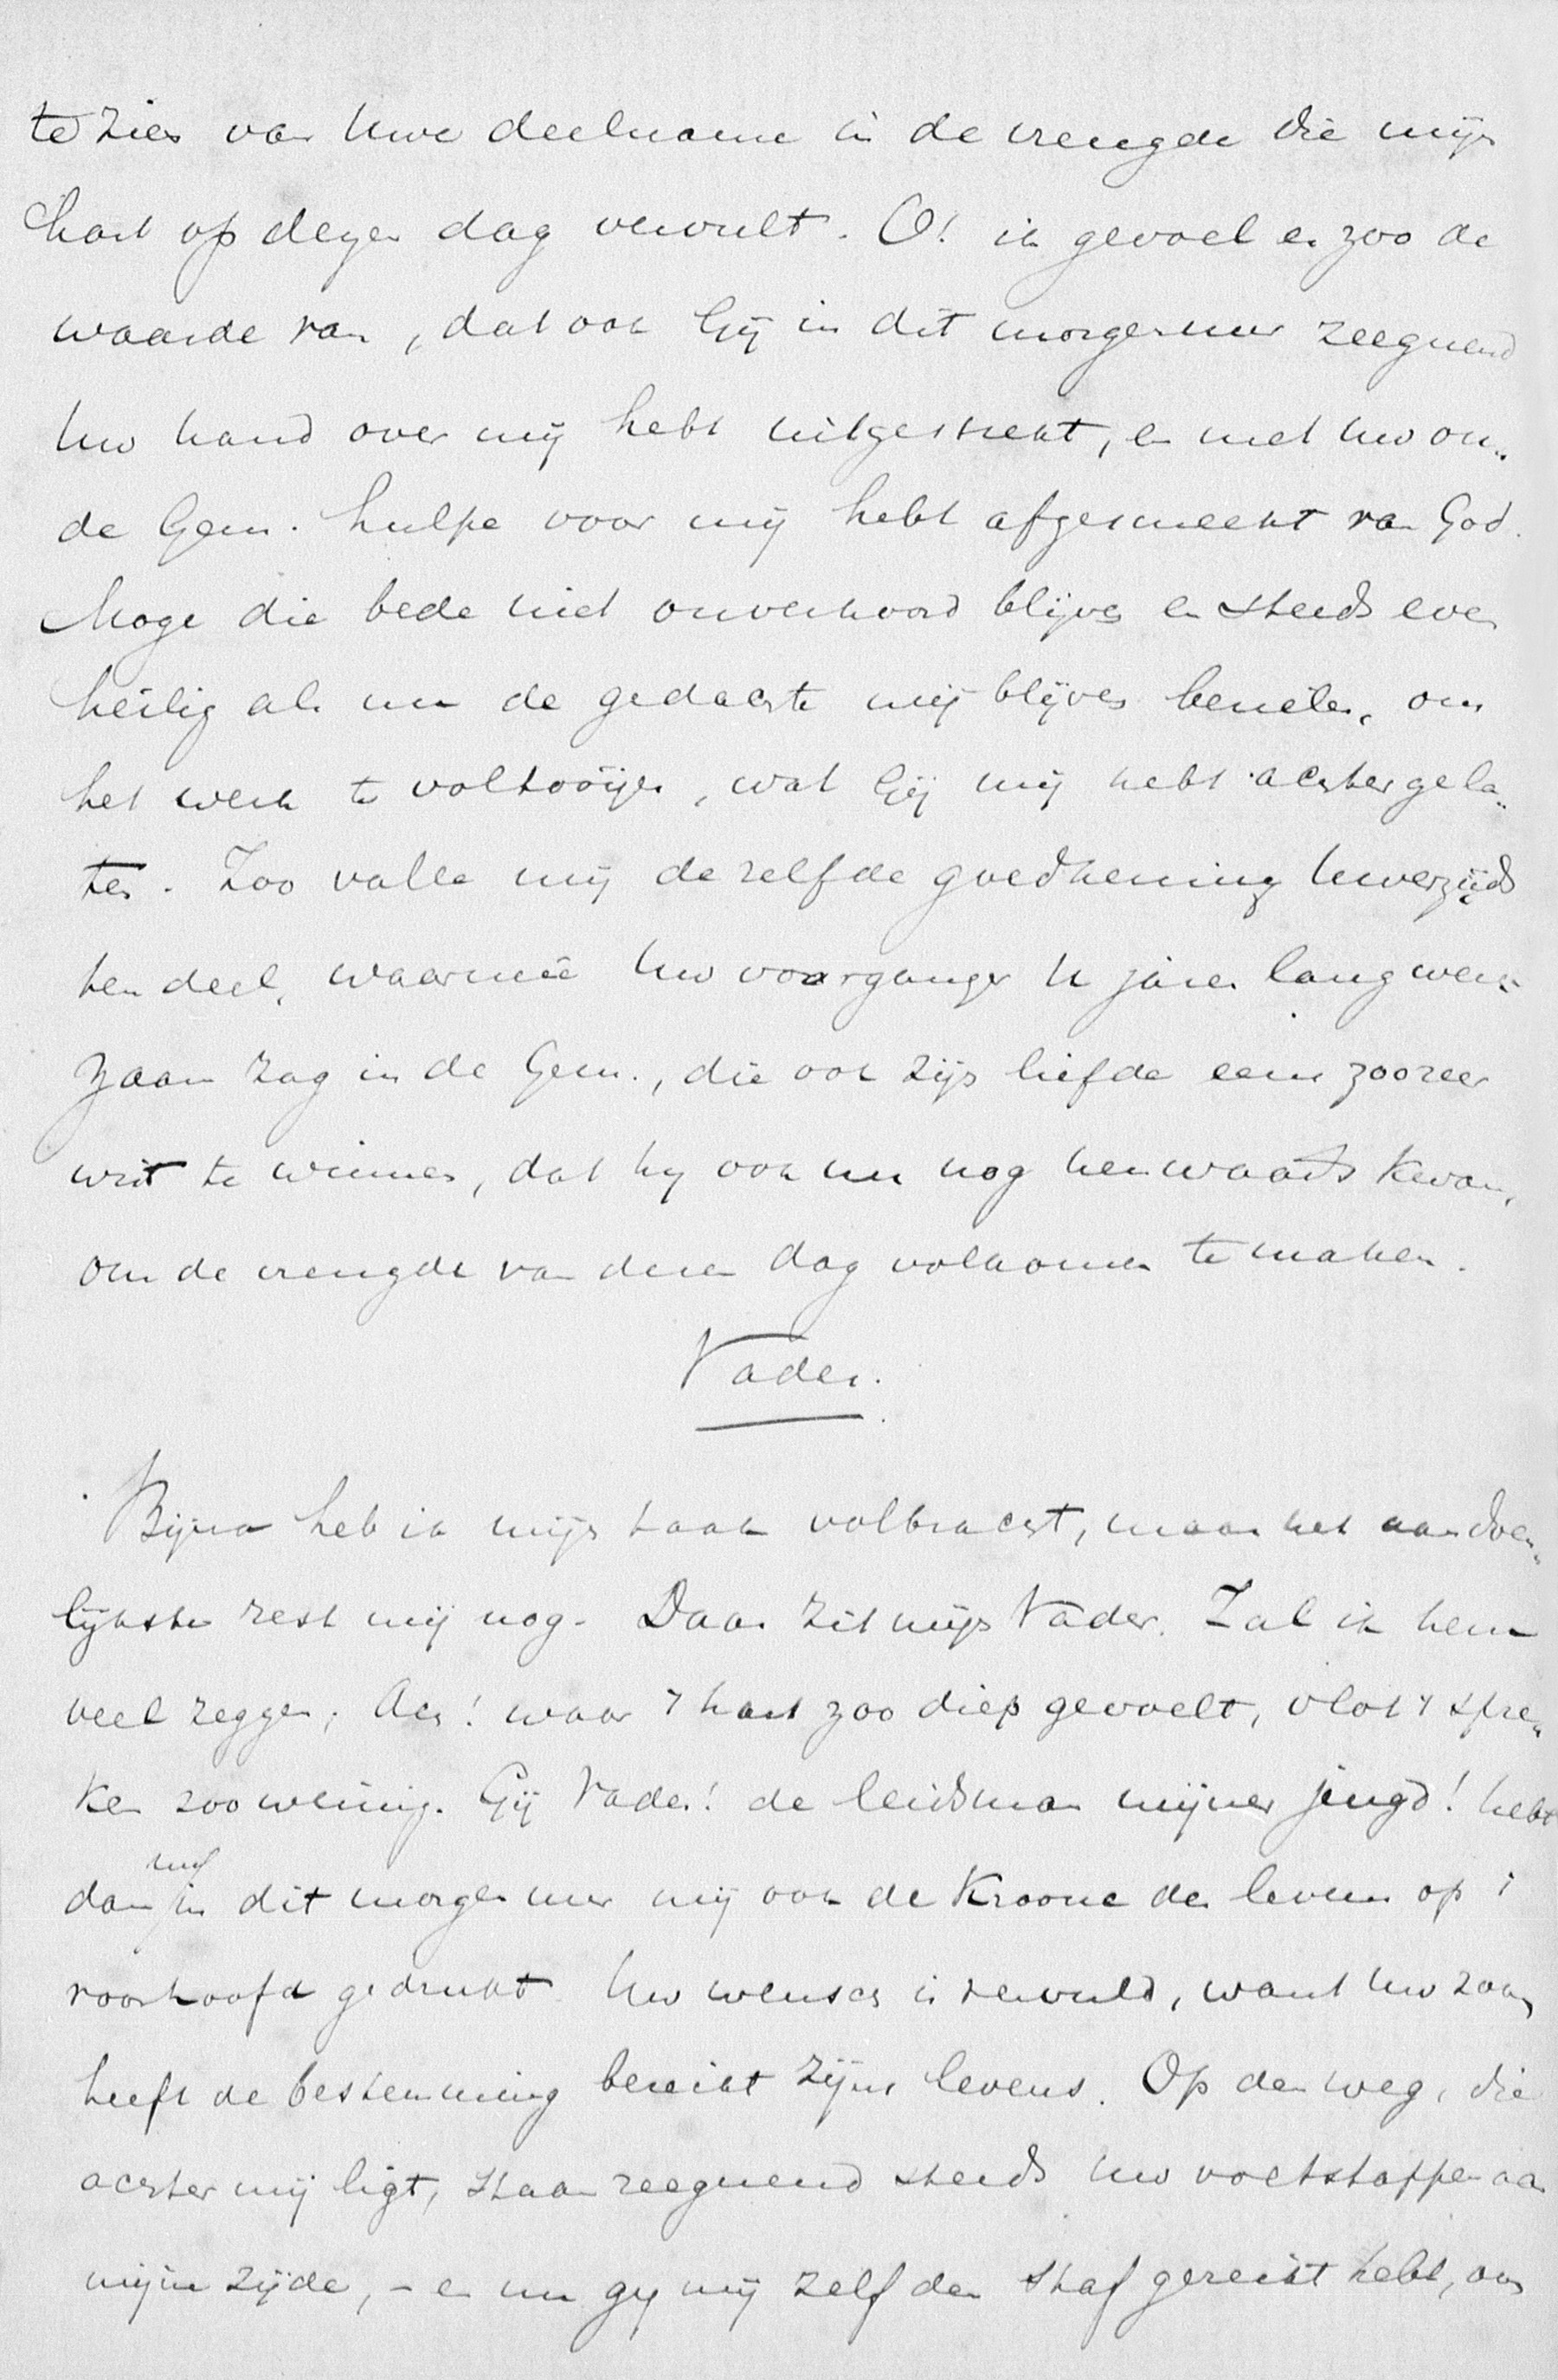 te zien van Uwe deelname in de vreugde die mijn
hart op dezen dag vervult. O! ik gevoel er zoo de
waarde van, dat ook Gij in dit morgenuur zeegnend
Uw hand over mij hebt uitgestrekt, en met Uw ou-
de Gem. hulpe voor mij hebt afgesmeekt van God.
Moge die bede niet onverhoord blijven en steeds even
heilig als nu de gedachte mij blijven bezielen, om
het werk te voltooijen, wat Gij mij hebt achtergela-
ten. Zoo valle mij dezelfde goedkeuring Uwerzijds
ten deel, waarmeê Uw voorganger U jaren lang werk-
zaam zag in de Gem., die ook zijn liefde eens zoozeer
wist te winnen, dat hy ook nu nog herwaards kwam,
om de vreugde van dezen dag volkomen te maken.
Vader.
Bijna heb ik mijn taak volbracht, maar het aandoen-
lijkste rest mij nog. Daar zit mijn Vader. Zal ik hem
veel zeggen; Ach! waar 't hart zoo diep gevoelt, vlot 't spre-
ken zoo weinig. Gij Vader! de leidsman mijner jeugd! hebt
dan in dit morgenuur mij ook de Kroone des levens op 't
voorhoofd gedrukt. Uw wensch is vervuld, want Uw zoon
heeft de bestemming bereikt zijns levens. Op den weg, die
achter mij ligt, staan zeegnend steeds Uw voetstappen aan
mijne zijde, – en nu gy mij zelf den staf gereikt hebt, om